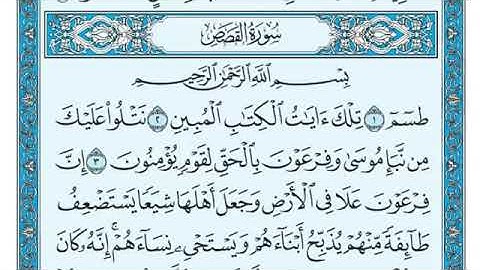 سُورَةُ القَصَصِ
بِسْمِ ٱللَّهِ ٱلرَّحْمَٰنِ ٱلرَّحِيمِ
طسٓمٓ ١ تِلْكَ ءَايَٰتُ ٱلْكِتَٰبِ ٱلْمُبِينِ ٢ نَتْلُوا۟ عَلَيْكَ
مِن نَّبَإِ مُوسَىٰ وَفِرْعَوْنَ بِٱلْحَقِّ لِقَوْمٍ يُؤْمِنُونَ ٣ إِنَّ
فِرْعَوْنَ عَلَا فِى ٱلْأَرْضِ وَجَعَلَ أَهْلَهَا شِيَعًا يَسْتَضْعِفُ
طَآئِفَةً مِّنْهُمْ يُذَبِّحُ أَبْنَآءَهُمْ وَيَسْتَحْىِۦ نِسَآءَهُمْ ۚ إِنَّهُۥ كَانَ